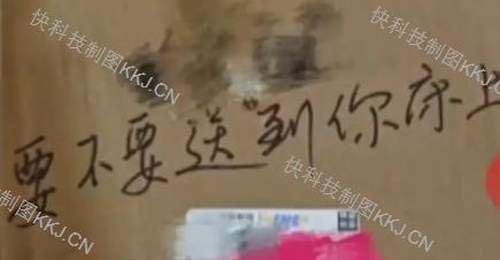 快科技制图KKJ.CN
快科技制图KKJ.CN
要不要送到你床上
快科技制图KKJ.CN
快科技制图KKJ.CN